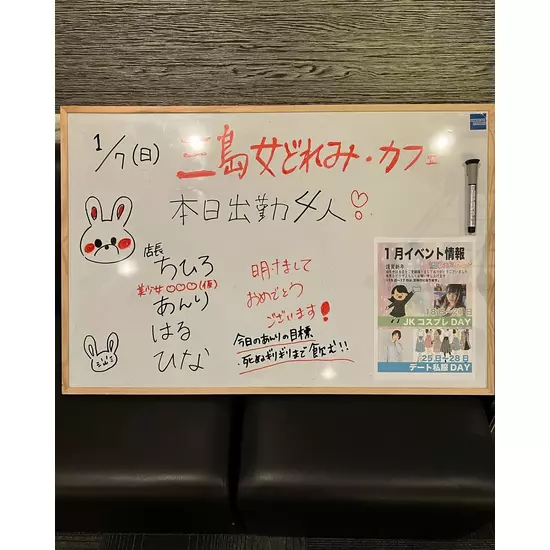 1/7(日)
三島女どれみ・カフェ
本日出勤4人
店長
ちひろ
美少女〇〇〇〇(仮)
あんり
はる
ひな
明けまして
おめでとう
ございます!
今日のあんりの目標
・死ぬギリギリまで飲む!!
1月イベント情報
謹賀新年
JKコスプレDAY
25日~28日
デート私服DAY